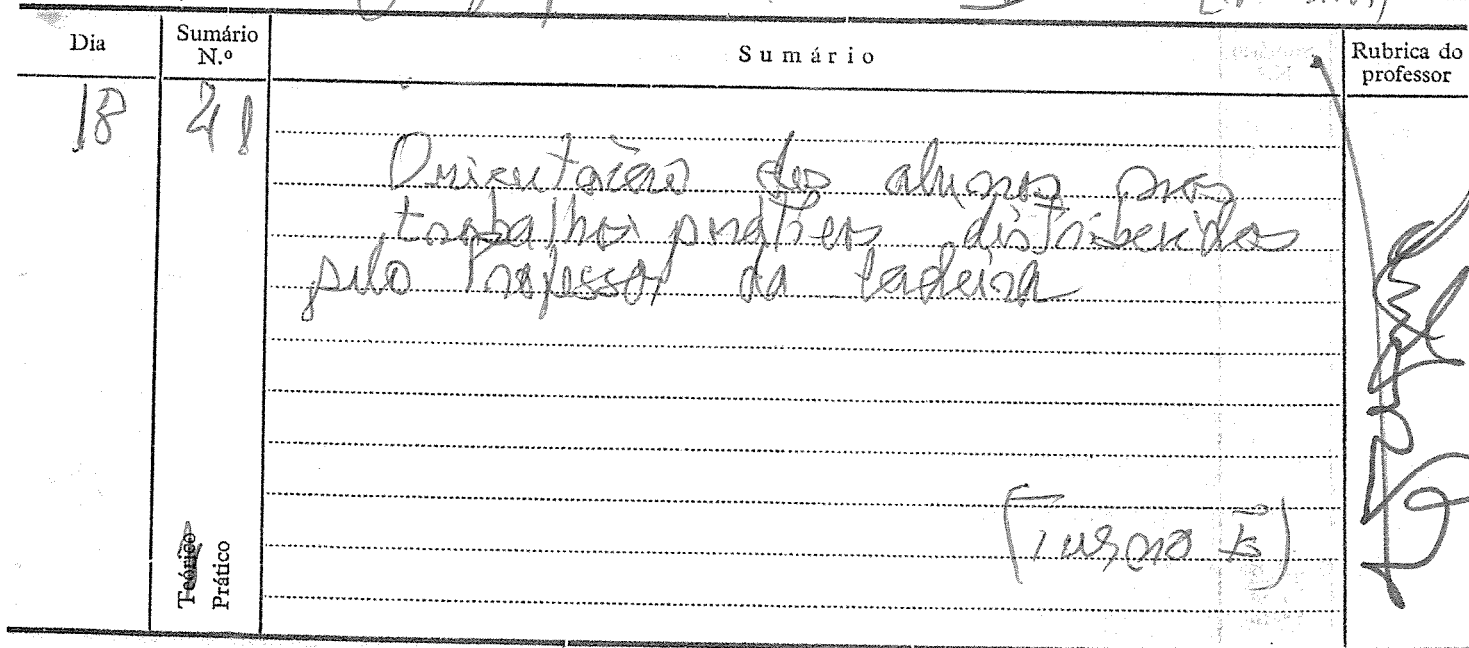 Dia
Sumário N.º
Sumário
Rubrica do professor
18
41
Orientação dos alunos nos
trabalhos práticos distribuidos
pelo Professor da Cadeira
(Turma E)
Teórico
Prático